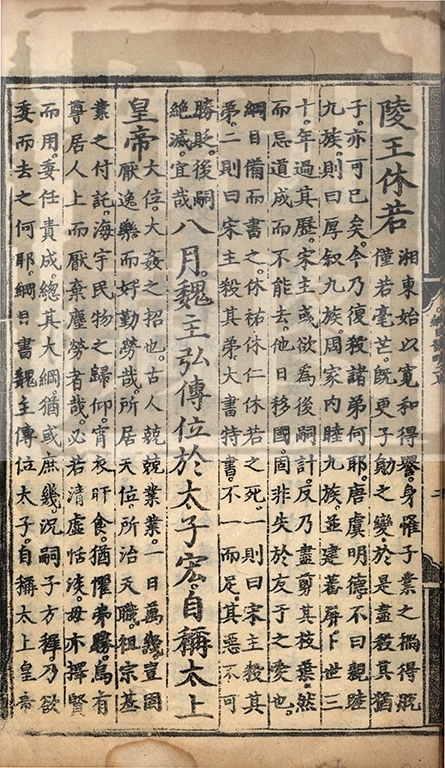 陵王休若
湘東始以寬和得譽。身懼子業之禍得脫
僅若毫芒。旣更子勛之變。於是盡殺其猶
子。亦可已矣。今乃復殺諸弟何耶。唐虞明德。不曰親睦
九族。則曰厚叙九族。周家內睦九族。並建舊屏。卜世三
十。年過其歷。宋主彧欲爲後嗣計。反乃盡剪其枝葉。然
而忌道成而不能去。他日移國。固非失於友于之愛也。
綱目備而書之。休祐休仁休若之死。一則曰宋主殺其
弟。二則曰宋主殺其弟。大書特書。不一而足。其惡不可
勝貶。後嗣
絶滅。宜哉
八月。魏主弘傳位於太子宏。自稱太上
皇帝
大位。大姦之招也。古人兢兢業業。一日萬幾。豈固
厭逸樂而好勤勞哉。所居天位。所治天職。祖宗基
業之付託。海宇民物之歸仰。宵衣旰食。猶懼弗勝。焉有
尊居人上而厭棄塵勞者哉。必若清虛恬淡。毋亦擇賢
而用。委任責成。總其大綱。猶或庶幾。況嗣子方穉。乃欲
委而去之何耶。綱目書魏主傳位太子。自稱太上皇帝